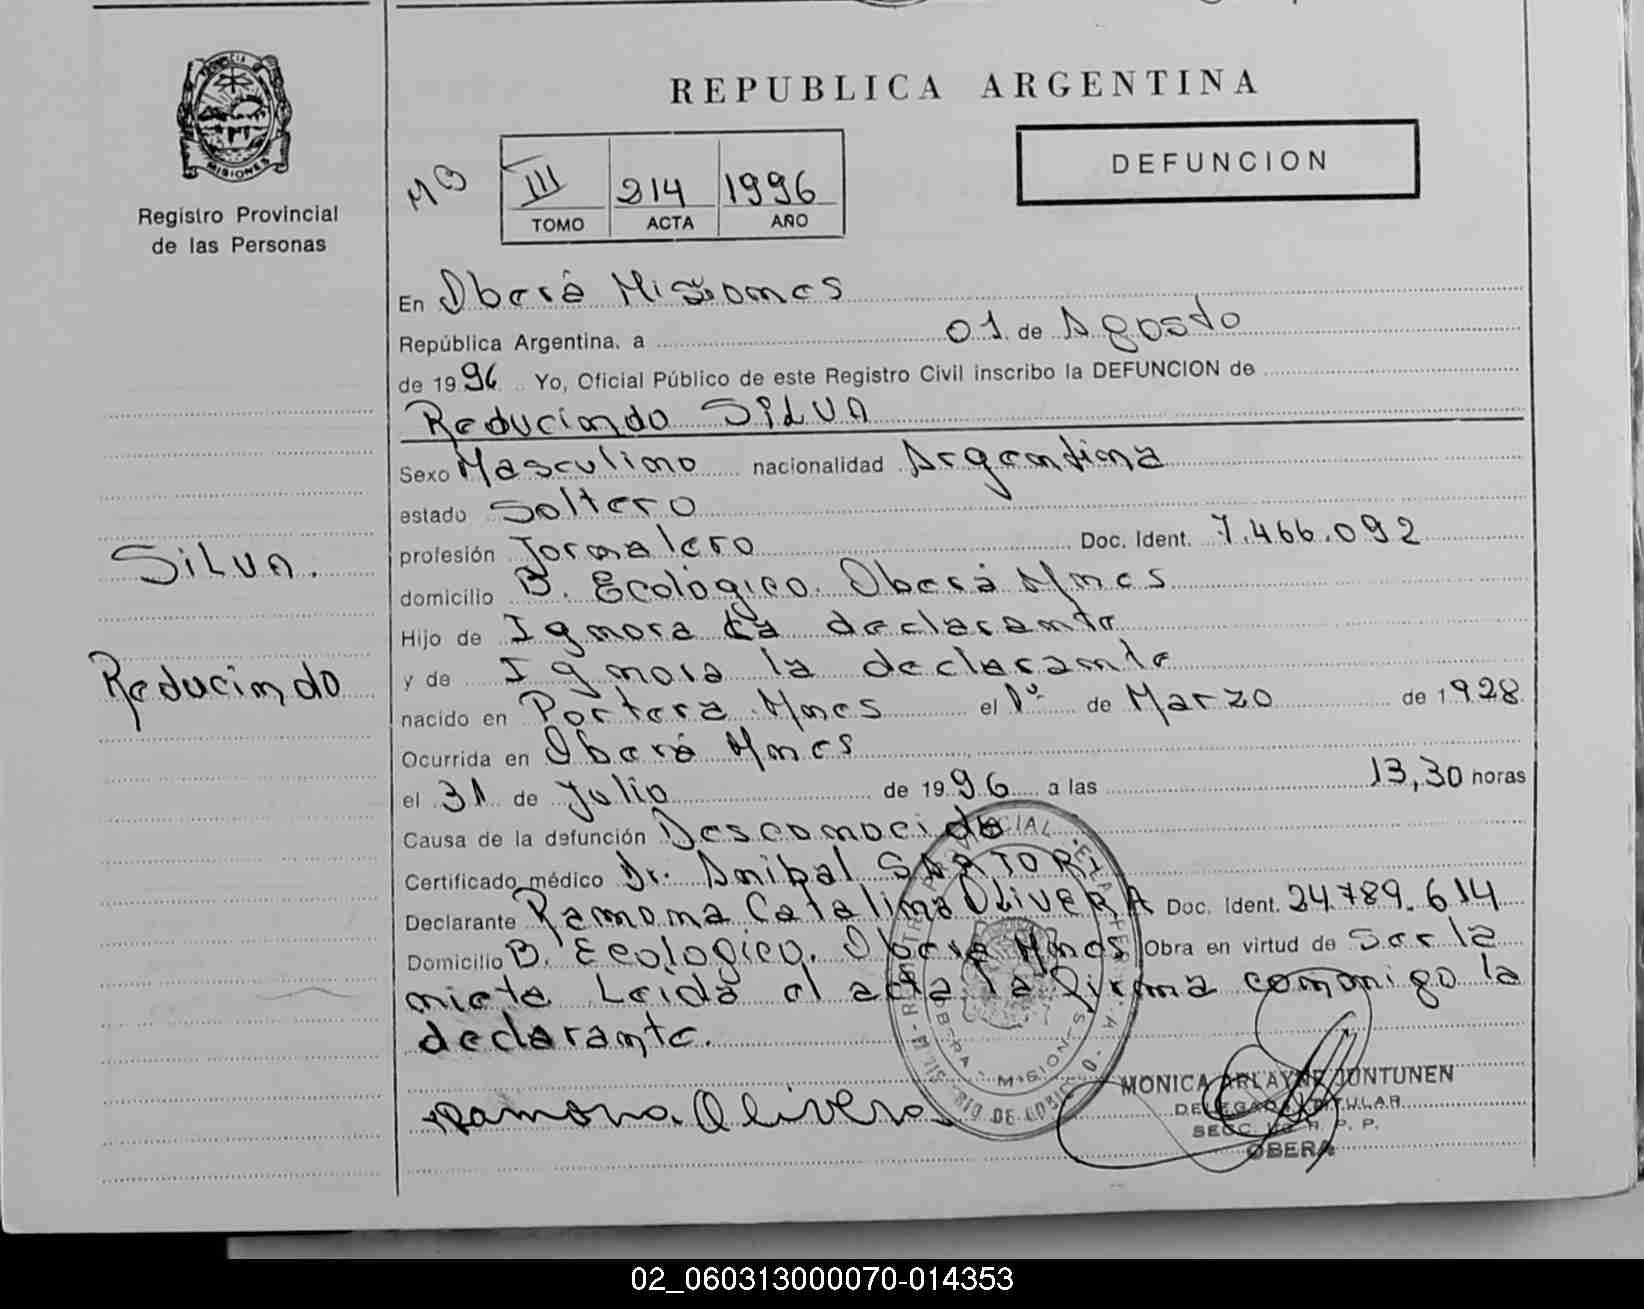 REPUBLICA ARGENTINA
PROVINCIA DE
MISIONES
Registro Provincial
de las Personas
III 214 1996
TOMO ACTA AÑO
DEFUNCION
En Oberá Misiones
República Argentina, a 01 de Agosto
de 1996 Yo, Oficial Público de este Registro Civil inscribo la DEFUNCION de
Reducindo SILVA
Sexo Masculino nacionalidad Argentina
estado Soltero
profesión Jornalero Doc. Ident. 7.466.092
domicilio B. Ecológico. Oberá Mnes
Hijo de Ignora la declarante
y de Ignora la declarante
nacido en Portera Mnes el 1º de Marzo de 1928
Ocurrida en Oberá Mnes
el 31 de Julio de 1996 a las 13,30 horas
Causa de la defunción Desconocida
Certificado médico Dr. Anibal SARTORI
Declarante Ramona Catalina OLIVERA Doc. Ident. 24.789.614
Domicilio B. Ecologico. Oberá Mnes Obra en virtud de Ser la
nieta Leida el acta la firma conmigo la
declarante.
SILVA.
Reducindo
Ramona Olivera
MONICA ARLAYNE JUNTUNEN
DELEGADA TITULAR
SECC. R. P. P.
OBERA
OBERA - MISIONES
02_060313000070-014353